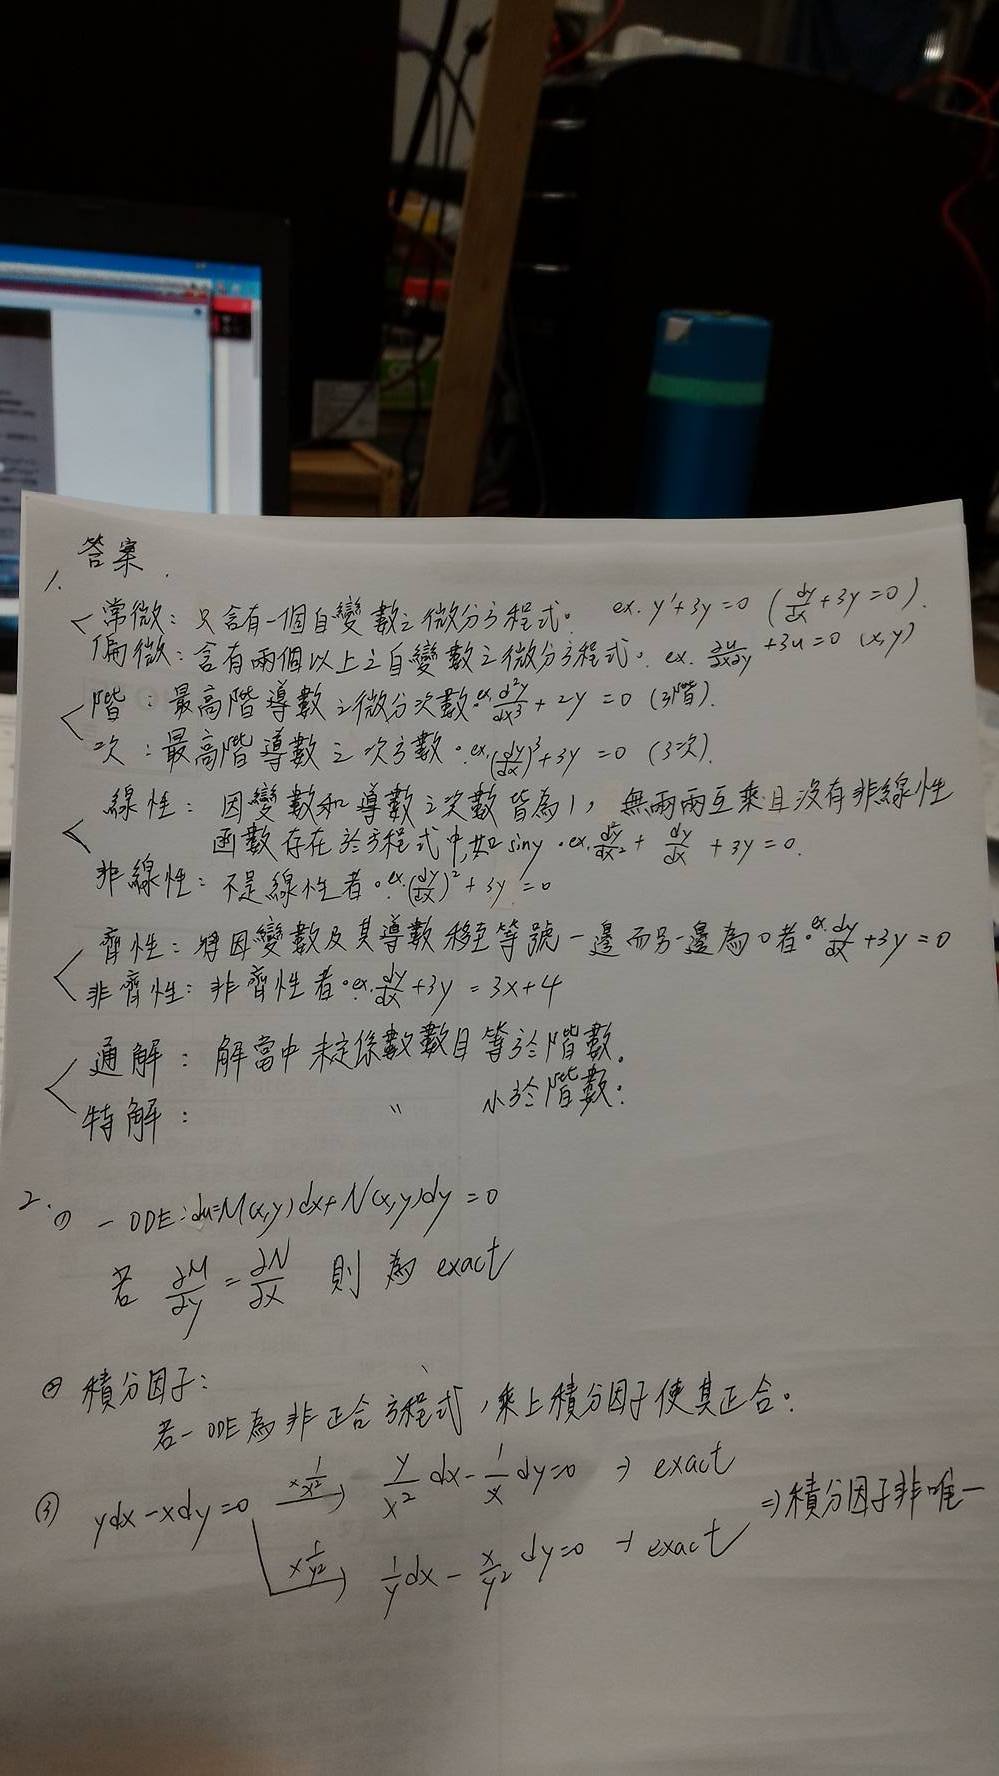 答案
1.
常微：只含有一個自變數之微分方程式。 ex. y'+3y=0 (dy/dx+3y=0).
偏微：含有兩個以上之自變數之微分方程式。 ex. ∂u/∂x∂y+3u=0 (x,y)
階：最高階導數之微分次數。ex. d²y/dx³+2y=0 (3階).
次：最高階導數之次方數。ex. (dy/dx)³+3y=0 (3次).
線性：因變數和導數之次數皆為1，無兩兩互乘且沒有非線性
函數存在於方程式中,如siny。ex. d²y/dx²+dy/dx+3y=0.
非線性：不是線性者。ex. (dy/dx)²+3y=0
齊性：將因變數及其導數移至等號一邊而另一邊為0者。ex. dy/dx+3y=0
非齊性：非齊性者。ex. dy/dx+3y=3x+4
通解：解當中未定係數數目等於階數。
特解： 〃 小於階數：
2. ① 一ODE：du=M(x,y)dx+N(x,y)dy=0
若 ∂M/∂y=∂N/∂x 則為 exact
② 積分因子：
若一ODE為非正合方程式，乘上積分因子使其正合。
③ ydx-xdy=0 ×1/x² → y/x² dx-1/x dy=0 → exact
×1/y² → 1/y dx-x/y² dy=0 → exact ⇒積分因子非唯一